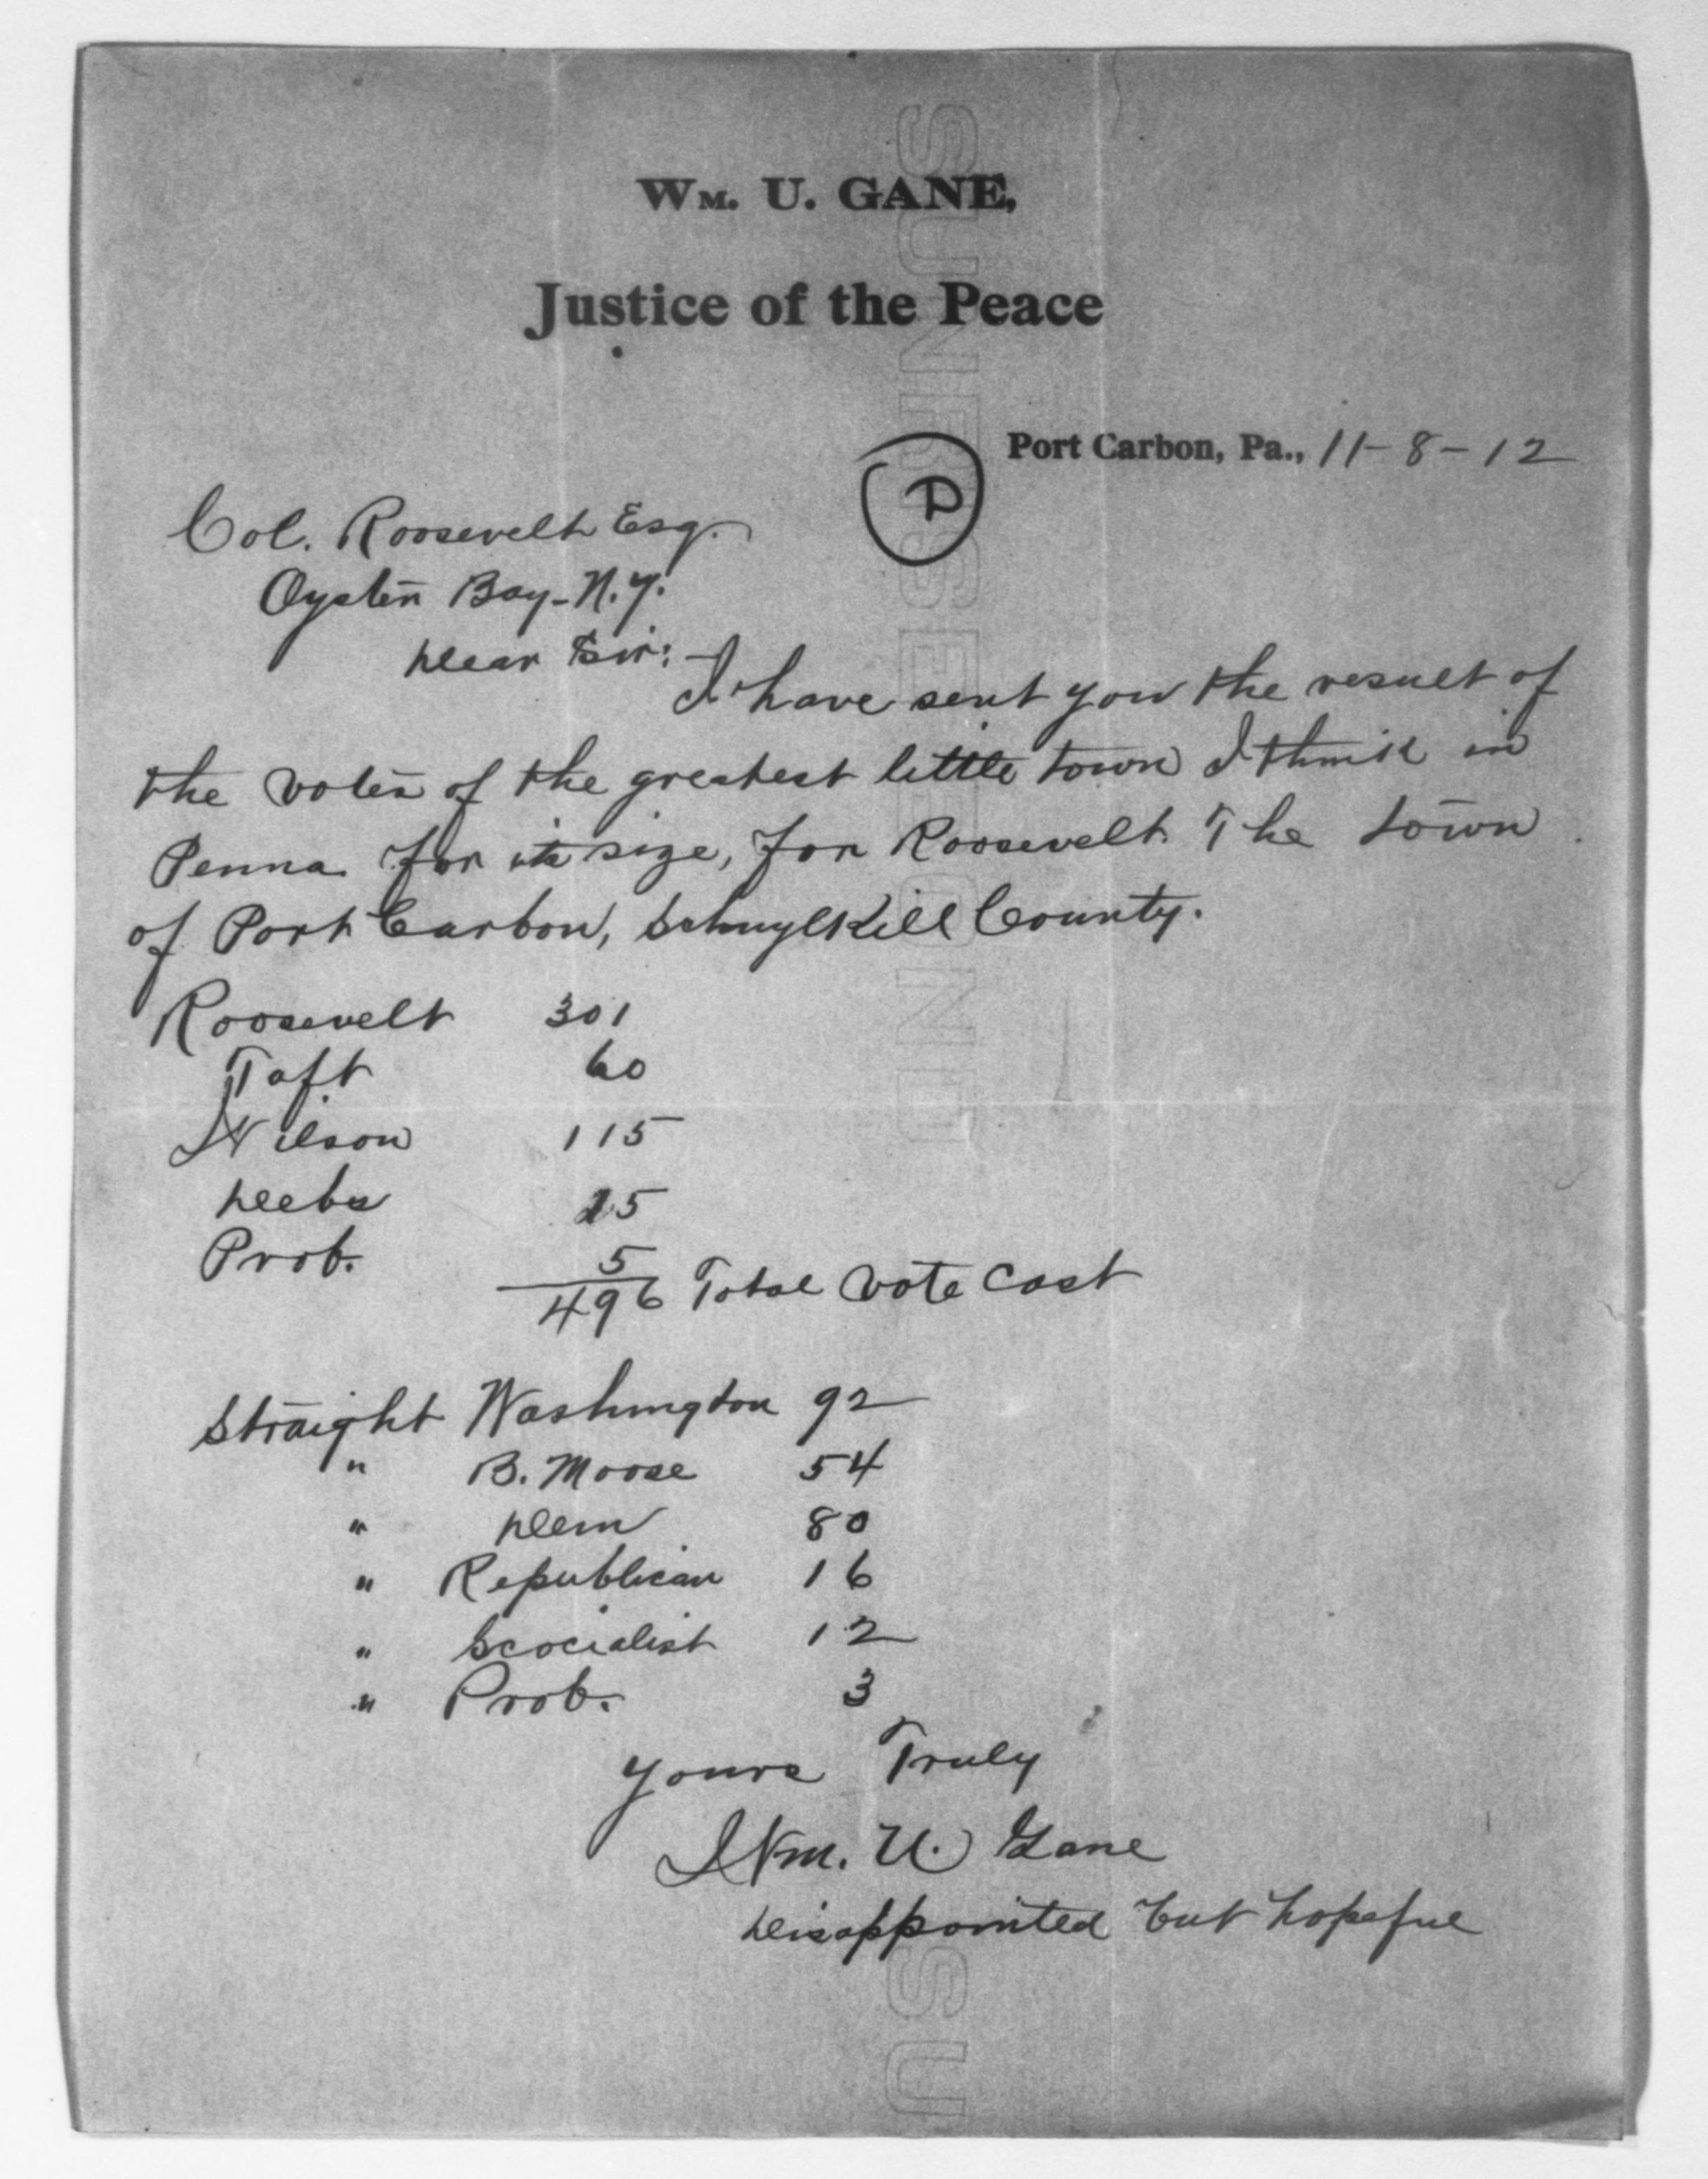 WM. U. GANE,
Justice of the Peace
Port Carbon, Pa., 11-8-12
P
Col. Roosevelt Esq.
Oyster Bay-N.Y.
Dear Sir:-
I have sent you the result of
the votes of the greatest little town I think in
Penna. for its size, for Roosevelt. The town
of Port Carbon, Schuylkill County.
Roosevelt 301
Taft 60
Wilson 115
Debs 15
Prob. 5
496 Total vote cast
Straight Washington 92
" B. Moose 54
" Dem 80
" Republican 16
" Scocialist 12
" Prob. 3
Yours Truly
Wm. U. Gane
Disappointed but hopeful